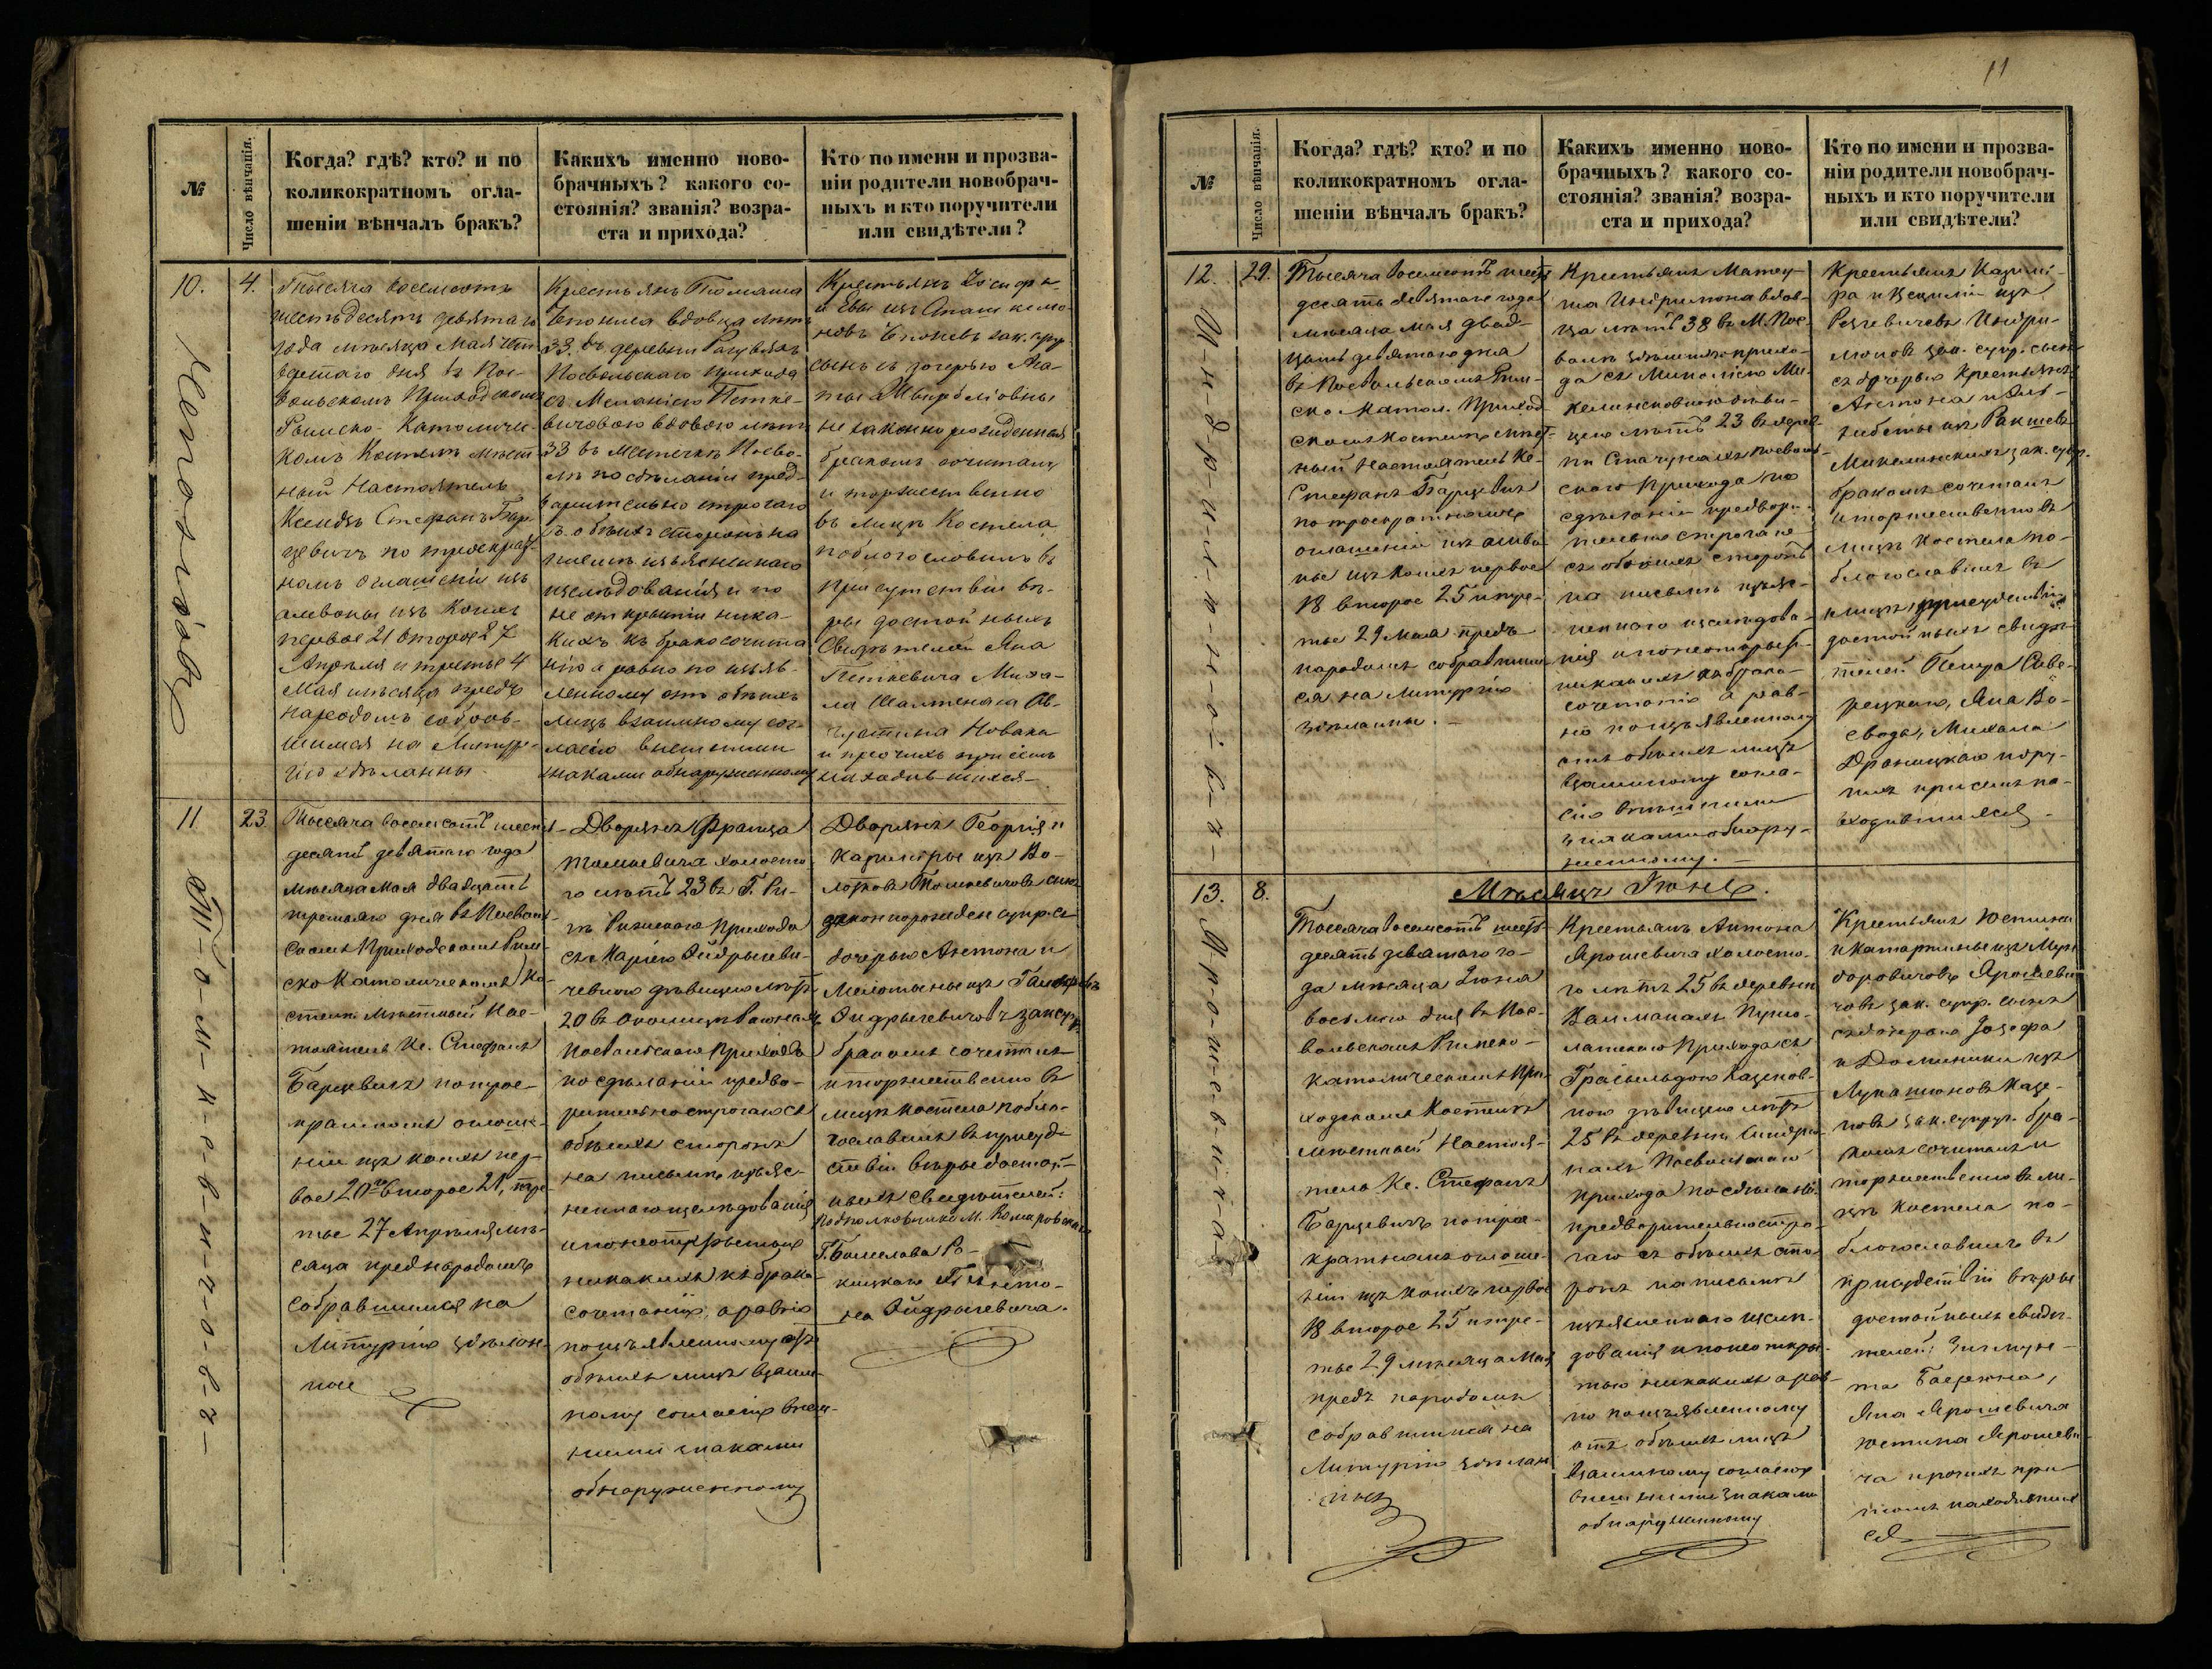 №
Число вѣнчанія.
Когда? гдѣ? кто? и по
коликократномъ огла-
шеніи вѣнчалъ бракъ?
Какихъ именно ново-
брачныхъ? какого со-
стоянія? званія? возра-
ста и прихода?
Кто по имени и прозва-
ніи родители новобрач-
ныхъ и кто поручители
или свидѣтели?
10.
4.
Тысяча восемсотъ
шестьдесятъ девятаго
года мѣсяца Мая чет-
вертаго дня въ Пос-
вольскомъ Приходскомъ
Римско-Католичес-
комъ Костелѣ мѣст
ный Настоятель
Ксендзъ Стефанъ Бар-
цевичъ по троекрат-
номъ оглашеніи изъ
амвоны изъ коихъ
первое 21 второе 27
Апрѣля и третье 4
Мая мѣсяца предъ
народомъ собрав-
шимся на Литур-
гію сдѣланны
Крестьянъ Томаша
вдовца лѣтъ
33. въ деревни
Посвольскаго прихода
съ Меланіею Петке-
вичовою вдовою лѣтъ
33 въ Местечкѣ Посво-
лѣ по сдѣланіи пред-
варительно строгаго
съ обѣихъ сторонъ на
письмѣ изъясненнаго
изслѣдованія и по
не открытіи ника-
кихъ къ бракосочета
нію а равно по изъяв-
ленному отъ обѣихъ
лицъ взаимному сог-
ласію внешними
знаками обнаруженному
Крестьянъ
и Евы изъ
зак. супр.
сынъ съ дочерью
незаконнорожденная
бракомъ сочеталъ
и торжественно
въ лицѣ Костела
поблогословилъ въ
присутствіи вѣ-
ры достойныхъ
Свидѣтелей Яна
Петкевича Миха-
ла
Новака
и прочихъ при семъ
находившихся
11
23
Тысяча восемсотъ шест-
десятъ девятаго года
мѣсяца Мая двадцать
третьяго дня въ Посволь-
скомъ Приходскомъ Рим-
ско Католическомъ Ко-
стелѣ мѣстный Нас-
тоятель Кс. Стефанъ
Барцевичъ по трое-
кратномъ оглаше-
ніи изъ коихъ пер-
вое 20го второе 21, тре-
тье 27 Апрѣля мѣ-
сяца предъ народомъ
собравшимся на
Литургію здѣлан-
ное
Дворянъ Франца
холосто-
го лѣтъ 23 въ Г. Ри-
гѣ Рижскаго Прихода
съ Маріею Эйдрыгеви-
чевною дѣвицею лѣтъ
20 въ Околицѣ
Посвольскаго Прихода
по сдѣланіи предва-
рительно строгаго съ
обѣихъ сторонъ
на письмѣ изъяс-
неннаго изслѣдованія
и по неоткрытію
никакихъ къ брако-
сочетанію а равно
по изъявленному отъ
обѣихъ лицъ взаим-
ному согласію внеш-
ними знаками
обнаруженному
Дворянъ Георгія и
изъ
дочерью Антона и
изъ
Эйдрыгевичовъ зак. супр.
бракомъ сочеталъ
и торжественно въ
лицѣ костела побло-
гославилъ въ присуд-
ствіи вѣры достой-
ныхъ свидѣтелей:
Подполковника М. Комаровскаго
Г. Болеслава Ро-
и Анто-
на Эйдрыгевича.
11
№
Число вѣнчанія.
Когда? гдѣ? кто? и по
коликократномъ огла-
шеніи вѣнчалъ бракъ?
Какихъ именно ново-
брачныхъ? какого со-
стоянія? званія? возра-
ста и прихода?
Кто по имени и прозва-
ніи родители новобрач-
ныхъ и кто поручители
или свидѣтели?
12.
29.
Тысяча восемсотъ шест
десятъ девятаго года
мѣсяца мая двад-
цать девятаго дня
въ Посвольскомъ Рим-
ско Катол. Приход-
скомъ костелѣ мѣст-
ный Настоятель Кс.
Стефанъ Барцевичъ
по троекратномъ
оглашеніи изъ амво-
ны изъ коихъ первое
18 второе 25 и тре-
тье 29 Мая предъ
народомъ собравшим-
ся на литургію
здѣланны.
Крестьянъ Матеу-
ша Индрилюна вдов-
ца лѣтъ 38 въ М. Пос-
волѣ здѣшняго прихо-
да съ Михаліею Ми-
келинсковною дѣви-
цею лѣтъ 23 въ дерев-
ни Стачунахъ Посволь-
скаго прихода по
сдѣланіи предвари-
тельно строгаго
съ обоихъ сторонъ
на письмѣ изъяс-
неннаго изслѣдова-
нія и по неоткрыт-
никакихъ къ брако-
сочетанію а рав-
но по изъявленному
отъ обоихъ лицъ
взаимному согла-
сію внѣшними
знаками обнару-
женному.
Крестьянъ Казими-
ра и Цециліи изъ
Рецевичевъ Индри-
люновъ зак. супр. сынъ
съ дочерью крестьянъ
Антона и Эль-
жбеты изъ
Микелинскихъ зак. супр.
бракомъ сочеталъ
и торжественно въ
лицѣ костела по-
благославилъ въ
присудствіи
достойныхъ свидѣ-
телей Петра Саве-
рецкаго, Яна Во-
свода, Михала
при семъ на-
ходившихся.
13.
8.
Мѣсяцъ Іюнь.
Тысяча восемсотъ шест-
десятъ девятаго го-
да мѣсяца Іюня
восьмого дня въ Пос-
вольскомъ Римско-
католическомъ При-
ходскомъ Костелѣ
мѣстный Настоя-
тель Кс. Стефанъ
Барцевичъ по трое-
кратномъ оглаше-
ніи изъ коихъ первое
18 второе 25 и тре-
тье 29 мѣсяца Мая
предъ народомъ
собравшимся на
Литургію здѣлан
ныхъ
Крестьянъ Антона
Ярошевича холосто-
го лѣтъ 25 въ деревни
прихода съ
Грасыльдою Казенов-
ною дѣвицею лѣтъ
25 въ деревни
Посвольскаго
прихода по сдѣланіи
предварительно стро-
гаго съ обѣихъ сто-
ронъ на письмѣ
изъясненнаго изслѣ-
дованія и по неоткры-
тію никакихъ а рав-
но по изъявленному
отъ обѣихъ лицъ
взаимному согласію
внешними знаками
обнаруженному
Крестьянъ Юстина
и Катаржины изъ
Ярошеви-
човъ зак. супр. сынъ
съ дочерью Іозефа
и Доминики изъ
Лукашюновъ Казе-
новъ зак. супруг. бра-
комъ сочеталъ и
торжественно въ ли-
цѣ костела по-
благославилъ въ
присудствіи вѣры
достойныхъ свидѣ-
телей: Зигмун-
та
Яна Ярошевича
Юстина Ярошеви-
ча и прочихъ при
томъ находивших
ся